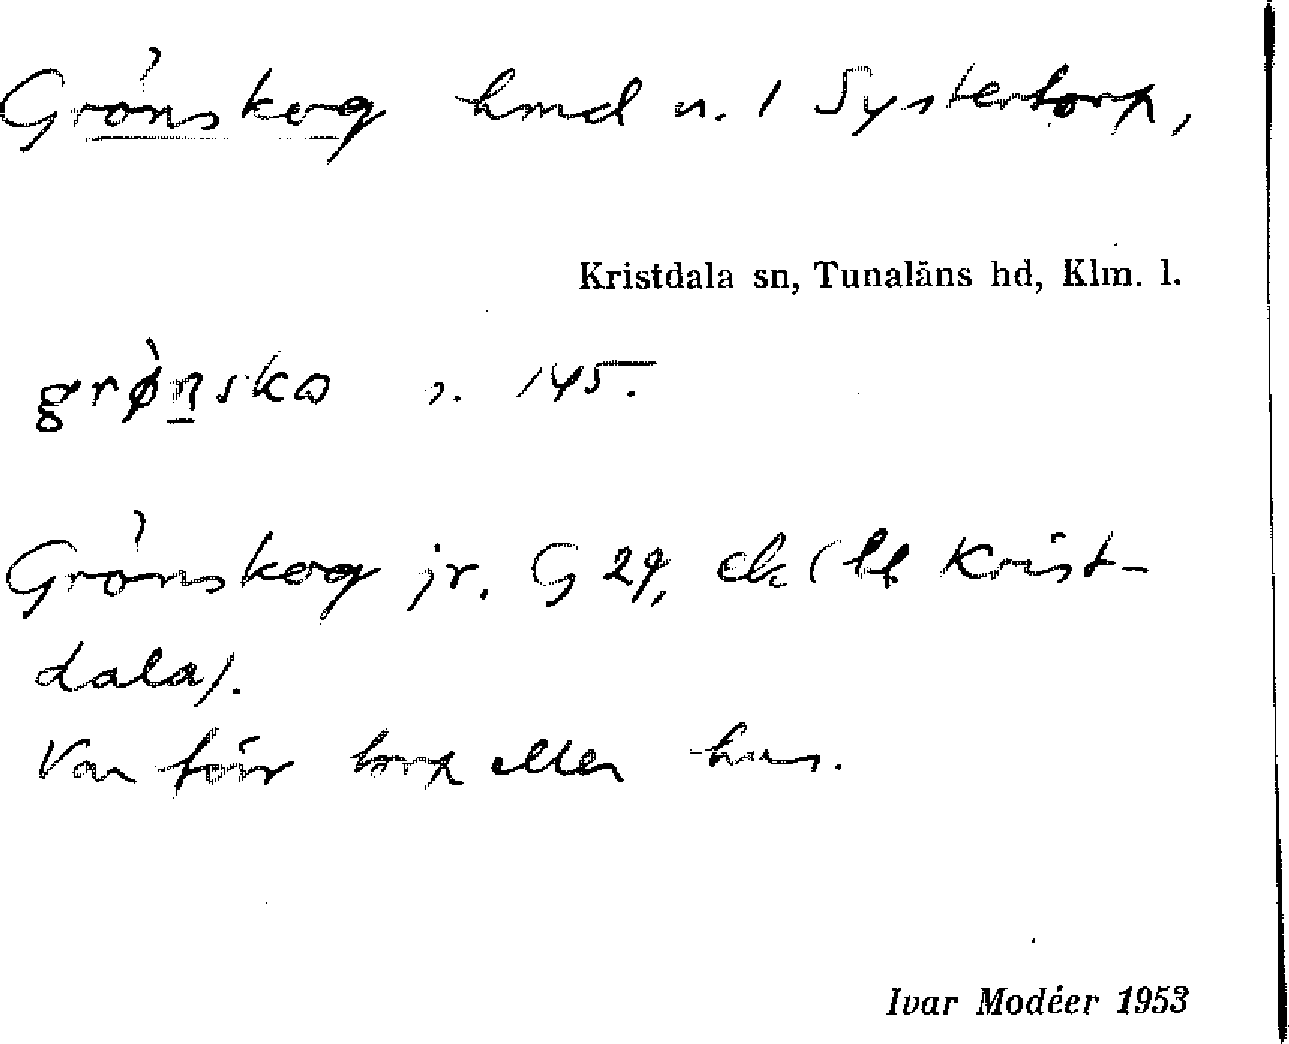 Grönskog hmd u. 1 Systertorp,
Kristdala sn, Tunaläns hd, Klm. l.
grø̀nsko s. 145.
Grönskog jr. G 29, ek (bl Krist-
dala).
Var förr torp eller hus.
Ivar Modéer 1953